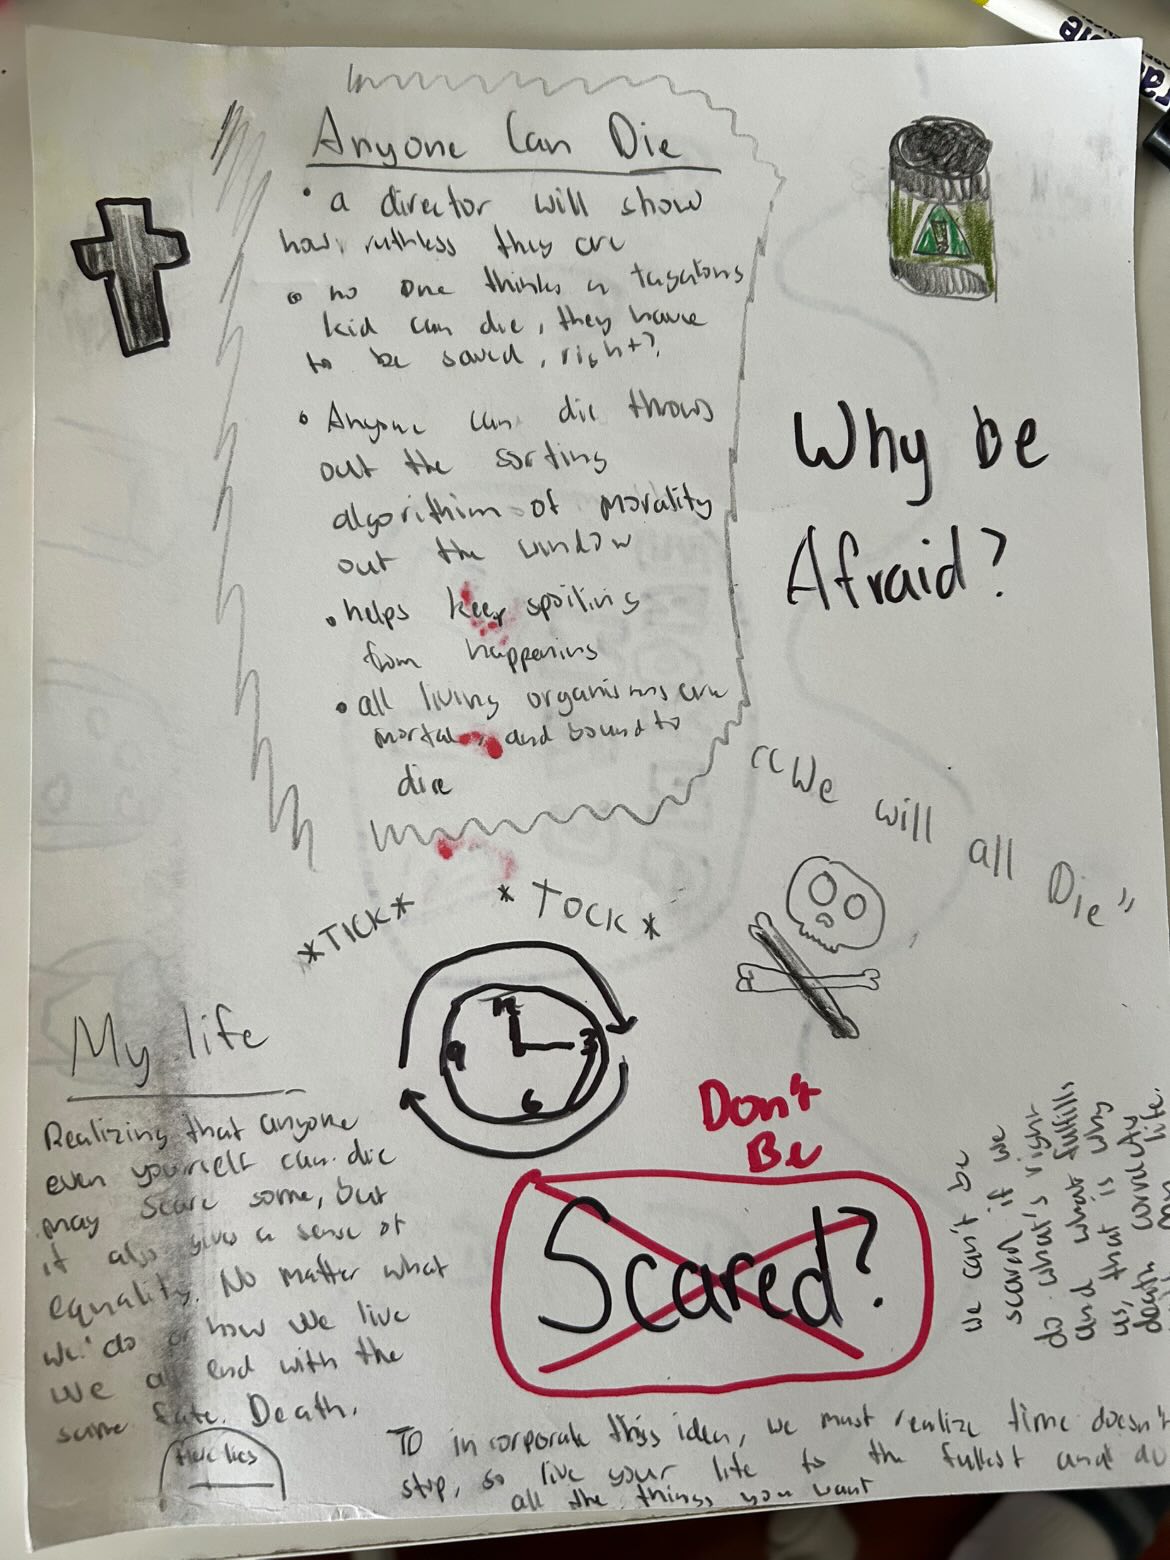 Anyone Can Die
• a director will show
how ruthless they are
• no one thinks a
kid can die, they have
to be saved, right?
• Anyone can die throws
out the sorting
algorithim of morality
out the window
• helps keep spoiling
from happening
• all living organisms are
mortal and bound to
die
Why be
Afraid?
"We will all Die"
*TICK* *TOCK*
12
9 3
6
My life
Realizing that anyone
even yourself can die
may scare some, but
it also gives a sense of
equality. No matter what
we do or how we live
we all end with the
same fate. Death.
Here lies
Don't
Be
Scared?
we can't be
scared if we
do what's right
and what fulfills
us, that is why
death correctly
life.
To incorporate this idea, we must realize time doesn't
stop, so live your life to the fullest and do
all the things you want